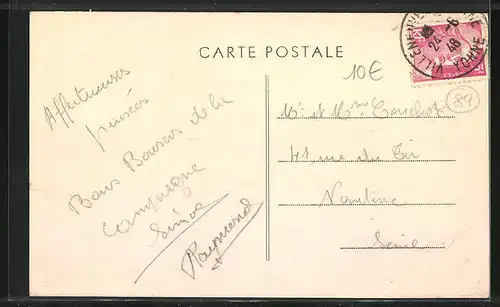 CARTE POSTALE
VILLENEUVE
24 -6
48
YONNE
10€
89
Affectueuses
pensées
Bons Baisers de la
Campagne
Simone
Raymond
Mr et Mme
41 rue du Tir
Nanterre
Seine